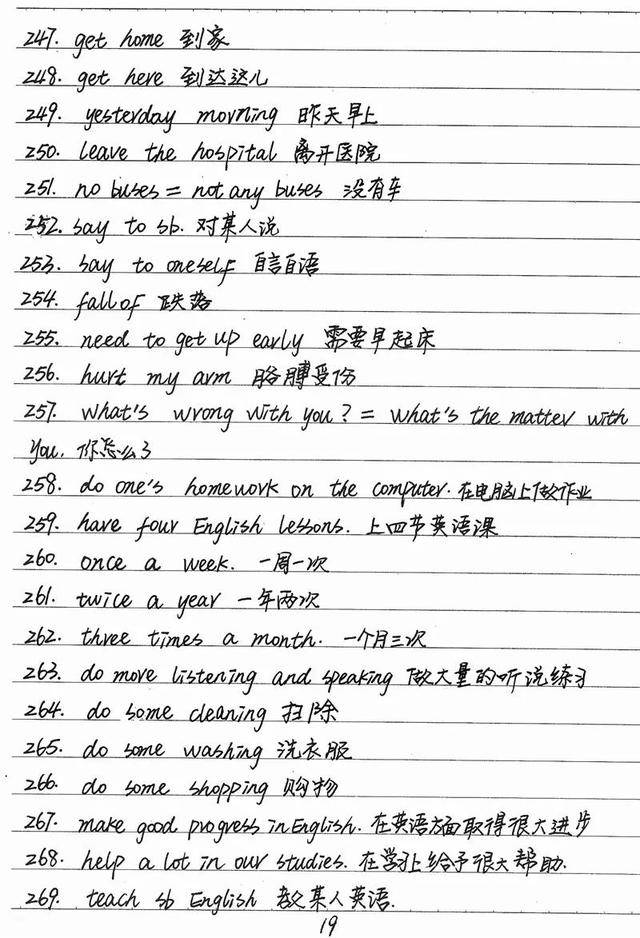 247. get home 到家
248. get here 到达这儿
249. yesterday morning 昨天早上
250. leave the hospital 离开医院
251. no buses = not any buses 没有车
252. say to sb. 对某人说
253. say to oneself 自言自语
254. fall of 跌落
255. need to get up early 需要早起床
256. hurt my arm 胳膊受伤
257. what's wrong with you? = what's the matter with
you. 你怎么了
258. do one's homework on the computer. 在电脑上做作业
259. have four English lessons. 上四节英语课
260. once a week. 一周一次
261. twice a year 一年两次
262. three times a month. 一个月三次
263. do more listening and speaking 做大量的听说练习
264. do some cleaning 扫除
265. do some washing 洗衣服
266. do some shopping 购物
267. make good progress in English. 在英语方面取得很大进步
268. help a lot in our studies. 在学习上给予很大帮助.
269. teach sb English 教某人英语.
19